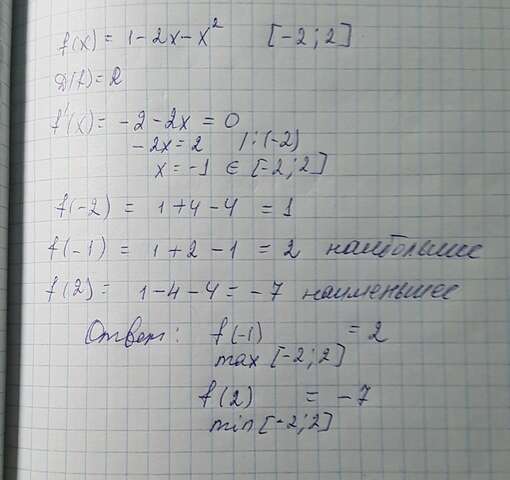 f(x) = 1-2x-x² [-2;2]
D(f)=R
f'(x)= -2-2x = 0
-2x=2 /:(-2)
x=-1 ∈ [-2;2]
f(-2) = 1+4-4 = 1
f(-1) = 1+2-1 = 2 наибольшее
f(2)= 1-4-4= -7 наименьшее
Ответ: f(-1) = 2
max [-2;2]
f(2) = -7
min [-2;2]